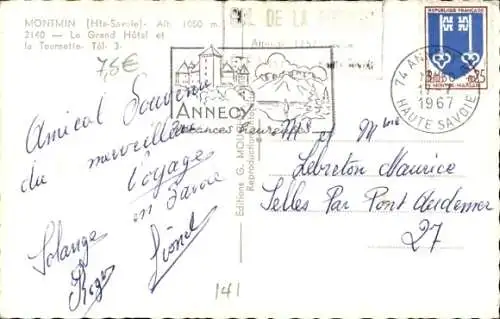 MONTMIN (Hte-Savoie) - Alt. 1050 m.
2140 - Le Grand Hôtel et
la Tournette - Tél. 3
7,5€
COL DE LA
ANNECY
vacances heureuses
REPUBLIQUE FRANÇAISE
0,25
MONT-DE-MARSAN
74 ANNECY
1967
HAUTE SAVOIE
Amical Souvenir
du merveilleux
Voyage
en Savoie
Solange
Lionel
Roger
Editions G. MOU
Reproduction
M et Mme
Lebreton Maurice
Selles Par Pont Audemer
27
141